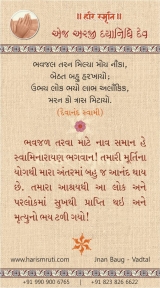 ॥ હરિ સ્મૃતિ ॥
એજ અરજી દયાનિધિ દેવ
ભવજલ તરન મિલ્યા મોય નૌકા,
બેઠત બહુ હરખાયો;
ઉભય લોક ભયો લાભ અલૌકિક,
મરન કો ત્રાસ મિટાયો.
(દેવાનંદ સ્વામી)
ભવજળ તરવા માટે નાવ સમાન હે
સ્વામિનારાયણ ભગવાન! તમારી મૂર્તિના
યોગથી મારા અંતરમાં બહુ જ આનંદ થાય
છે. તમારા આશ્રયથી આ લોક અને
પરલોકમાં સુખથી પ્રાપ્તિ થઇ અને
મૃત્યુનો ભય ટળી ગયો!
www.harismruti.com
Jnan Baug - Vadtal
+91 990 900 6765
+91 823 826 6622